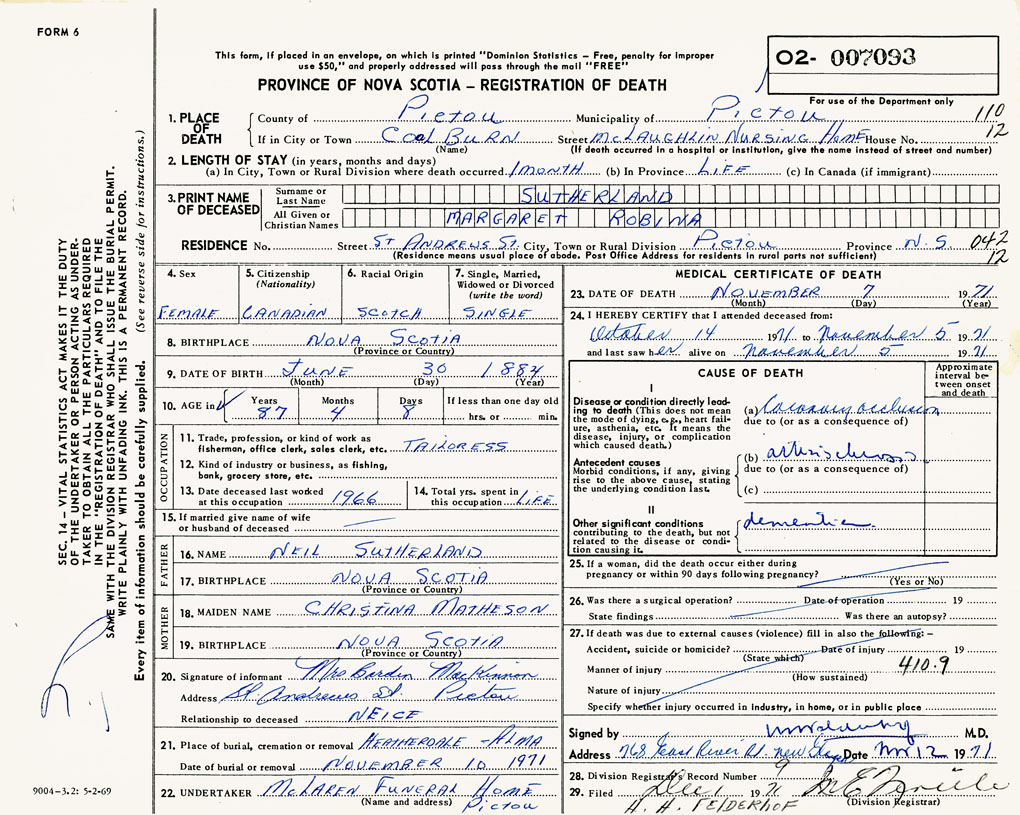 FORM 6
This form, if placed in an envelope, on which is printed "Dominion Statistics – Free, penalty for improper
use $50," and properly addressed will pass through the mail "FREE"
02- 007093
For use of the Department only
PROVINCE OF NOVA SCOTIA – REGISTRATION OF DEATH
1. PLACE OF DEATH
County of Pictou Municipality of Pictou 110
If in City or Town Coal Burn Street McLaughlin Nursing Home House No. 12
(Name) (If death occurred in a hospital or institution, give the name instead of street and number)
2. LENGTH OF STAY (in years, months and days)
(a) In City, Town or Rural Division where death occurred 1 month (b) In Province LIFE (c) In Canada (if immigrant)
3. PRINT NAME OF DECEASED
Surname or Last Name SUTHERLAND
All Given or Christian Names MARGARET ROBINA
RESIDENCE No. Street St Andrews St. City, Town or Rural Division Pictou Province N.S. 042
(Residence means usual place of abode. Post Office Address for residents in rural parts not sufficient) 12
4. Sex
FEMALE
5. Citizenship
(Nationality)
CANADIAN
6. Racial Origin
SCOTCH
7. Single, Married,
Widowed or Divorced
(write the word)
SINGLE
8. BIRTHPLACE NOVA SCOTIA
(Province or Country)
9. DATE OF BIRTH JUNE 30 1884
(Month) (Day) (Year)
10. AGE in Years Months Days If less than one day old
87 4 8 hrs. or min.
OCCUPATION
11. Trade, profession, or kind of work as
fisherman, office clerk, sales clerk, etc. TAILORESS
12. Kind of industry or business, as fishing,
bank, grocery store, etc.
13. Date deceased last worked
at this occupation 1966
14. Total yrs. spent in
this occupation LIFE
15. If married give name of wife
or husband of deceased
FATHER
16. NAME NEIL SUTHERLAND
17. BIRTHPLACE NOVA SCOTIA
(Province or Country)
MOTHER
18. MAIDEN NAME CHRISTINA MATHESON
19. BIRTHPLACE NOVA SCOTIA
(Province or Country)
20. Signature of informant Mrs MacKinnon
Address St. Andrews St Pictou
Relationship to deceased NEICE
21. Place of burial, cremation or removal HEATHERDALE - ALMA
Date of burial or removal NOVEMBER 10 1971
22. UNDERTAKER McLAREN FUNERAL HOME
(Name and address) Pictou
MEDICAL CERTIFICATE OF DEATH
23. DATE OF DEATH NOVEMBER 7 1971
(Month) (Day) (Year)
24. I HEREBY CERTIFY that I attended deceased from:
October 14 1971 to November 5 1971
and last saw her alive on November 5 1971
CAUSE OF DEATH
Approximate
interval be-
tween onset
and death
I
Disease or condition directly lead-
ing to death (This does not mean
the mode of dying, e.g., heart fail-
ure, asthenia, etc. It means the
disease, injury, or complication
which caused death.)
(a) Coronary occlusion
due to (or as a consequence of)
Antecedent causes
Morbid conditions, if any, giving
rise to the above cause, stating
the underlying condition last.
(b)
due to (or as a consequence of)
(c)
II
Other significant conditions
contributing to the death, but not
related to the disease or condi-
tion causing it.
dementia.
25. If a woman, did the death occur either during
pregnancy or within 90 days following pregnancy?
(Yes or No)
26. Was there a surgical operation? Date of operation 19
State findings Was there an autopsy?
27. If death was due to external causes (violence) fill in also the following: –
Accident, suicide or homicide? Date of injury 19
(State which)
Manner of injury 410.9
(How sustained)
Nature of injury
Specify whether injury occurred in industry, in home, or in public place
Signed by M.D.
Address 768 East River Rd. New Date Nov 12 1971
28. Division Registrar's Record Number 9
29. Filed Dec 1 1971
(Division Registrar)
H. H. FELDERHOF
SEC. 14 – VITAL STATISTICS ACT MAKES IT THE DUTY
OF THE UNDERTAKER OR PERSON ACTING AS UNDER-
TAKER TO OBTAIN ALL THE PARTICULARS REQUIRED
IN THE "REGISTRATION OF DEATH" AND TO FILE THE
SAME WITH THE DIVISION REGISTRAR WHO SHALL ISSUE THE BURIAL PERMIT.
WRITE PLAINLY WITH UNFADING INK. THIS IS A PERMANENT RECORD.
Every item of information should be carefully supplied. (See reverse side for instructions.)
9004-3.2: 5-2-69